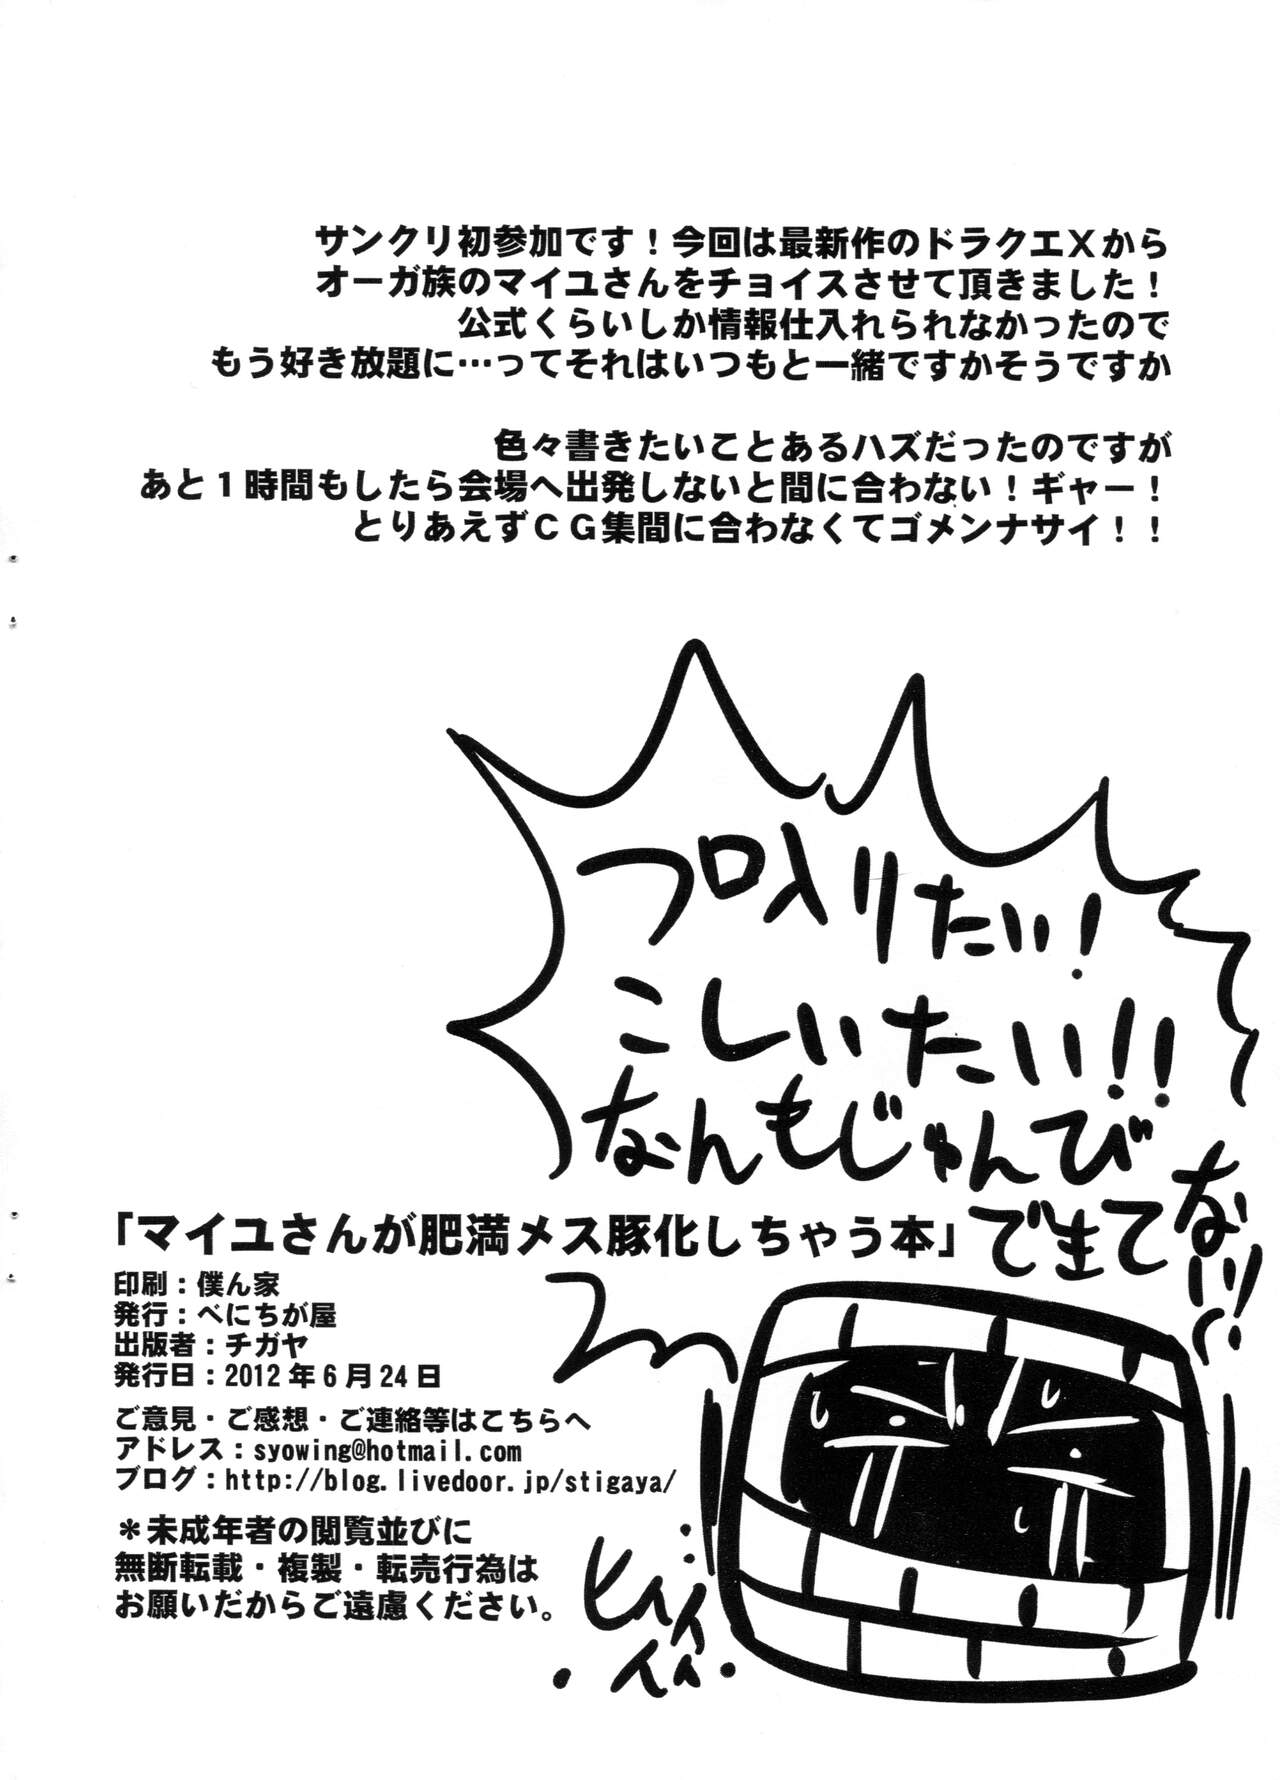 サンクリ初参加です！今回は最新作のドラクエⅩから
オーガ族のマイユさんをチョイスさせて頂きました！
公式くらいしか情報仕入れられなかったので
もう好き放題に…ってそれはいつもと一緒ですかそうですか
色々書きたいことあるハズだったのですが
あと１時間もしたら会場へ出発しないと間に合わない！ギャー！
とりあえずＣＧ集間に合わなくてゴメンナサイ！！
フロ入りたい！
こしいたい！！
なんもじゅんび
できて
ない！！
「マイユさんが肥満メス豚化しちゃう本」
印刷：僕ん家
発行：べにちが屋
出版者：チガヤ
発行日：2012年6月24日
ご意見・ご感想・ご連絡等はこちらへ
アドレス：syowing@hotmail.com
ブログ：http://blog.livedoor.jp/stigaya/
＊未成年者の閲覧並びに
無断転載・複製・転売行為は
お願いだからご遠慮ください。